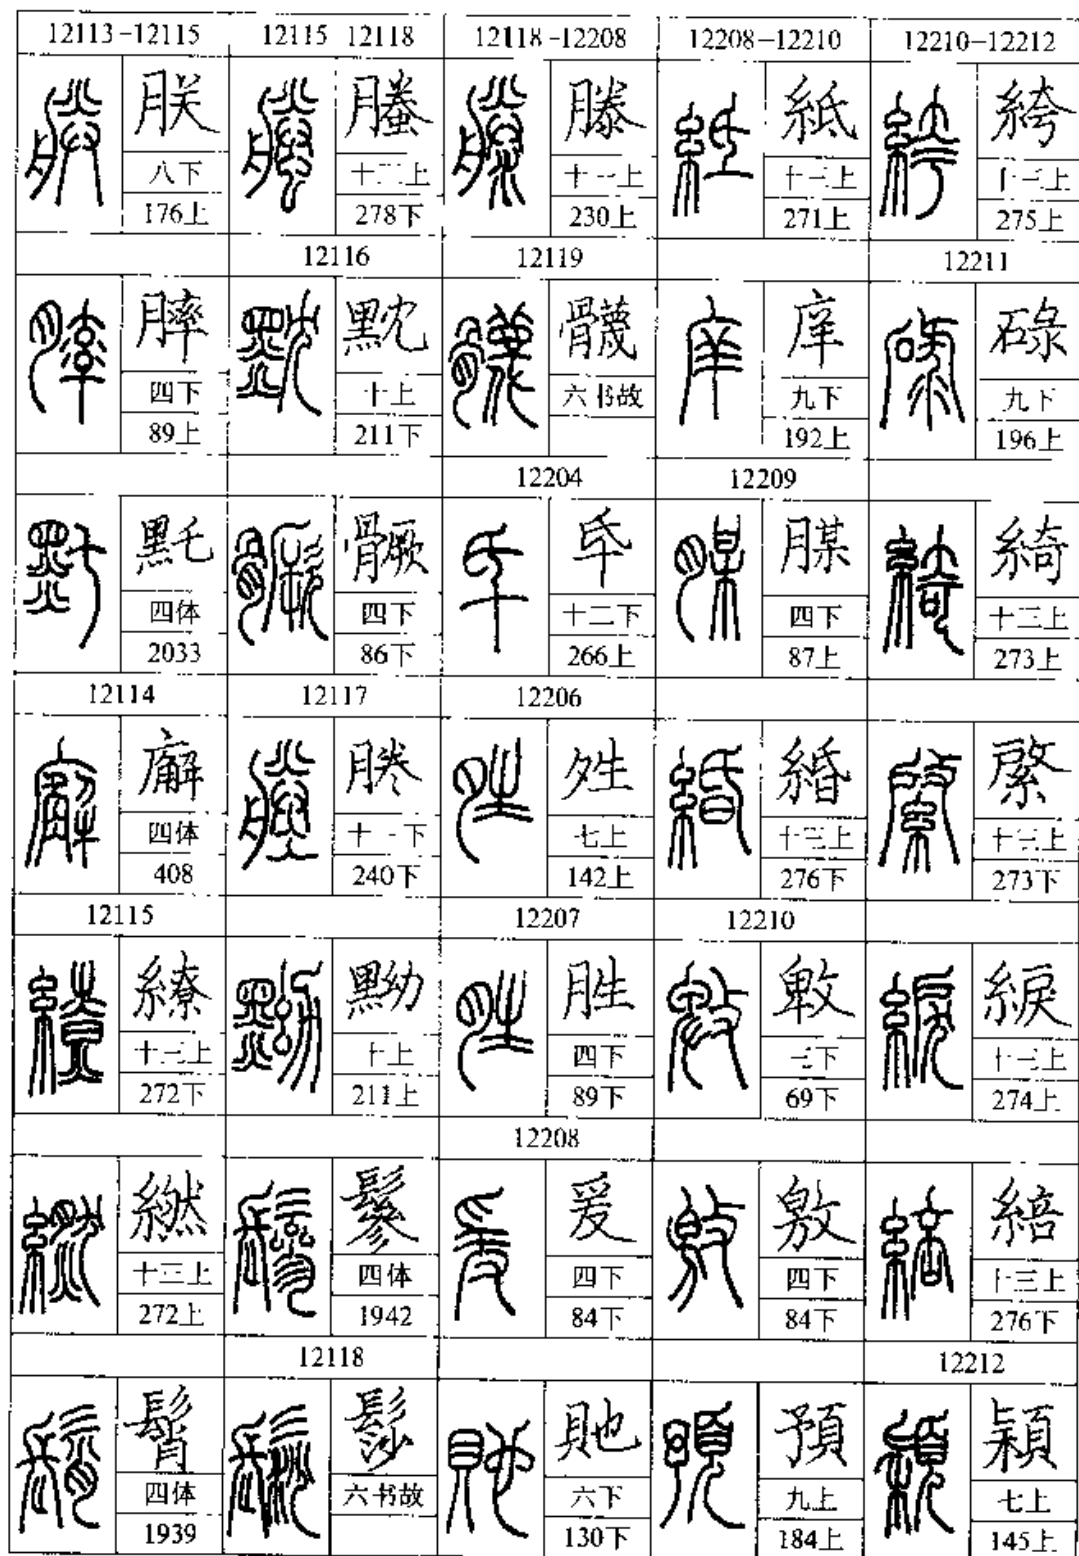 12113-12115
朕
八下
176上
膟
四下
89上
四体
2033
12114
廨
四体
408
12115
繚
十三上
272下
繎
十三上
272上
髾
四体
1939
12115 12118
螣
十三上
278下
12116
黕
十上
211下
四下
86下
12117
十一下
240下
黝
十上
211上
鬖
四体
1942
12118
髿
六书故
12118-12208
滕
十一上
230上
12119
六书故
12204
氒
十二下
266上
12206
夝
七上
142上
12207
胜
四下
89下
12208
爰
四下
84下
貤
六下
130下
12208-12210
紙
十三上
271上
庠
九下
192上
12209
腜
四下
87上
緡
十三上
276下
12210
三下
69下
敫
四下
84下
預
九上
184上
12210-12212
絝
十三上
275上
12211
碌
九下
196上
綺
十三上
273上
綮
十三上
273下
綟
十三上
274上
十三上
276下
12212
穎
七上
145上